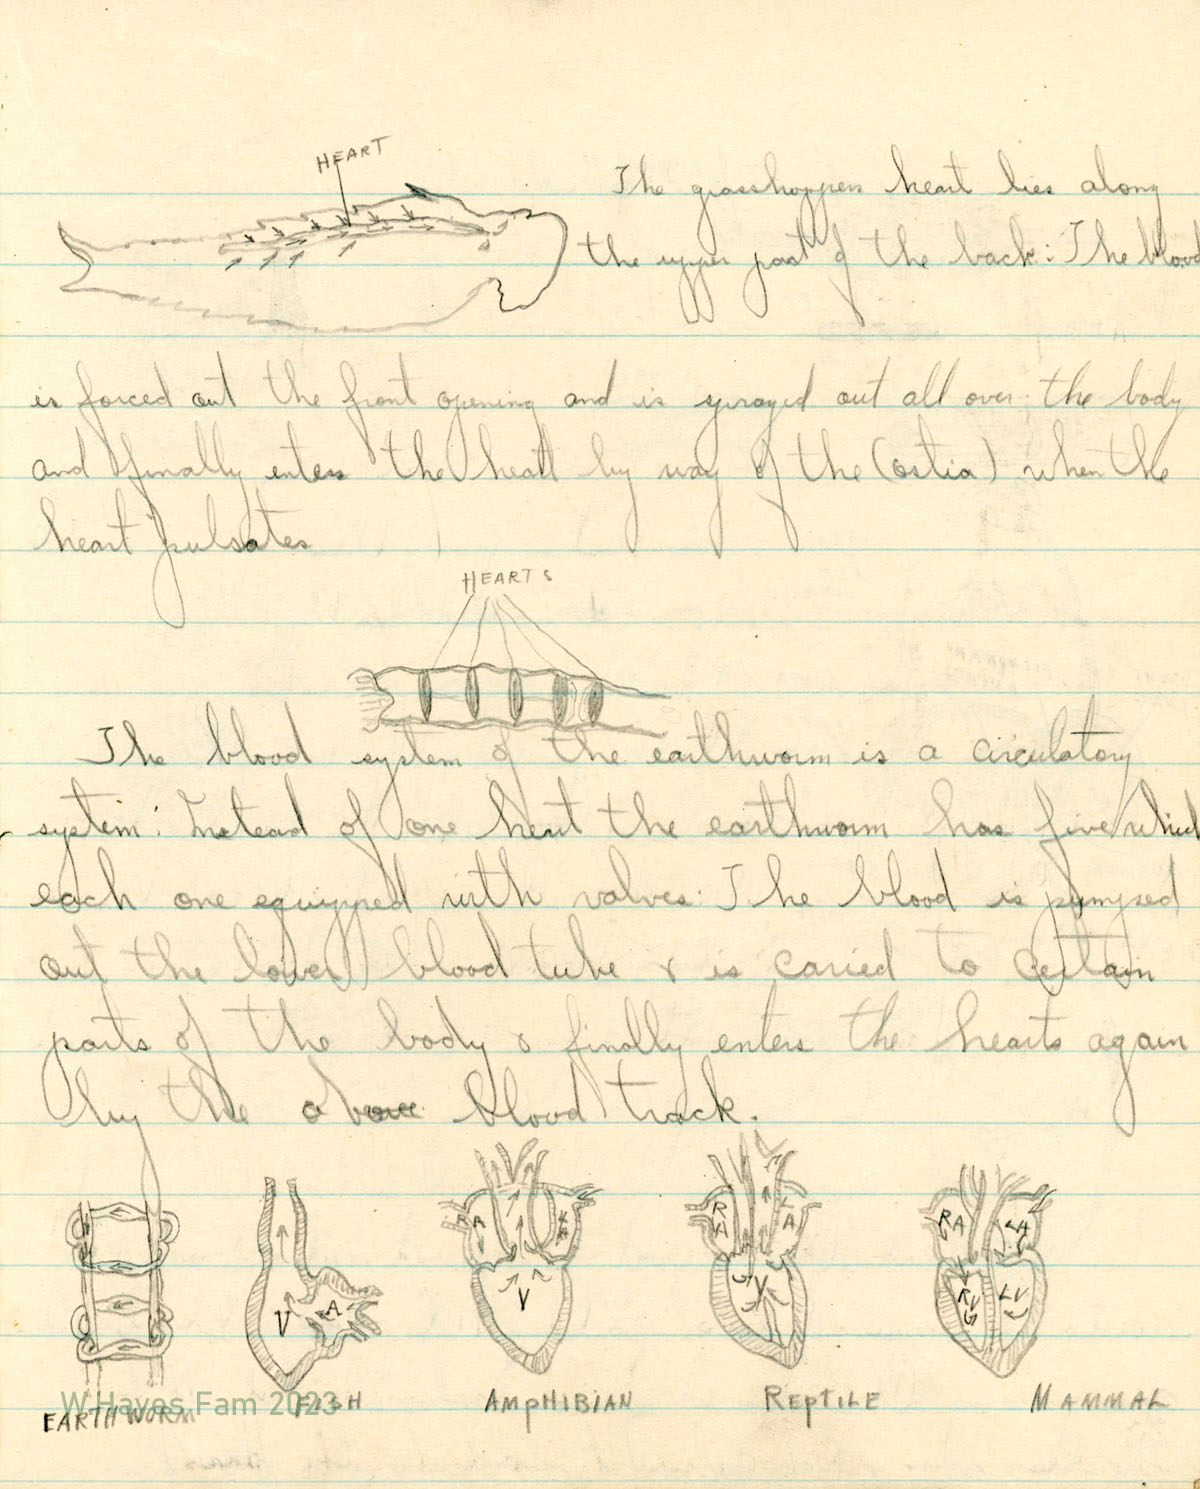 HEART
The grasshoppers heart lies along
the upper part of the back: The blood
is forced out the front opening and is sprayed out all over the body
and finally enters the heart by way of the (ostia) when the
heart pulsates
HEARTS
The blood system of the earthworm is a circulatory
system: Instead of one heart the earthworm has five which
each one equipped with valves: The blood is pumped
out the lower blood tube & is caried to certain
parts of the body & finally enters the hearts again
by the above blood track.
RA
V
A
V
RA
A
V
RA
LA
RV
LV
W Hayes Fam 2023
EARTHWORM
FISH
AMPHIBIAN
REPTILE
MAMMAL